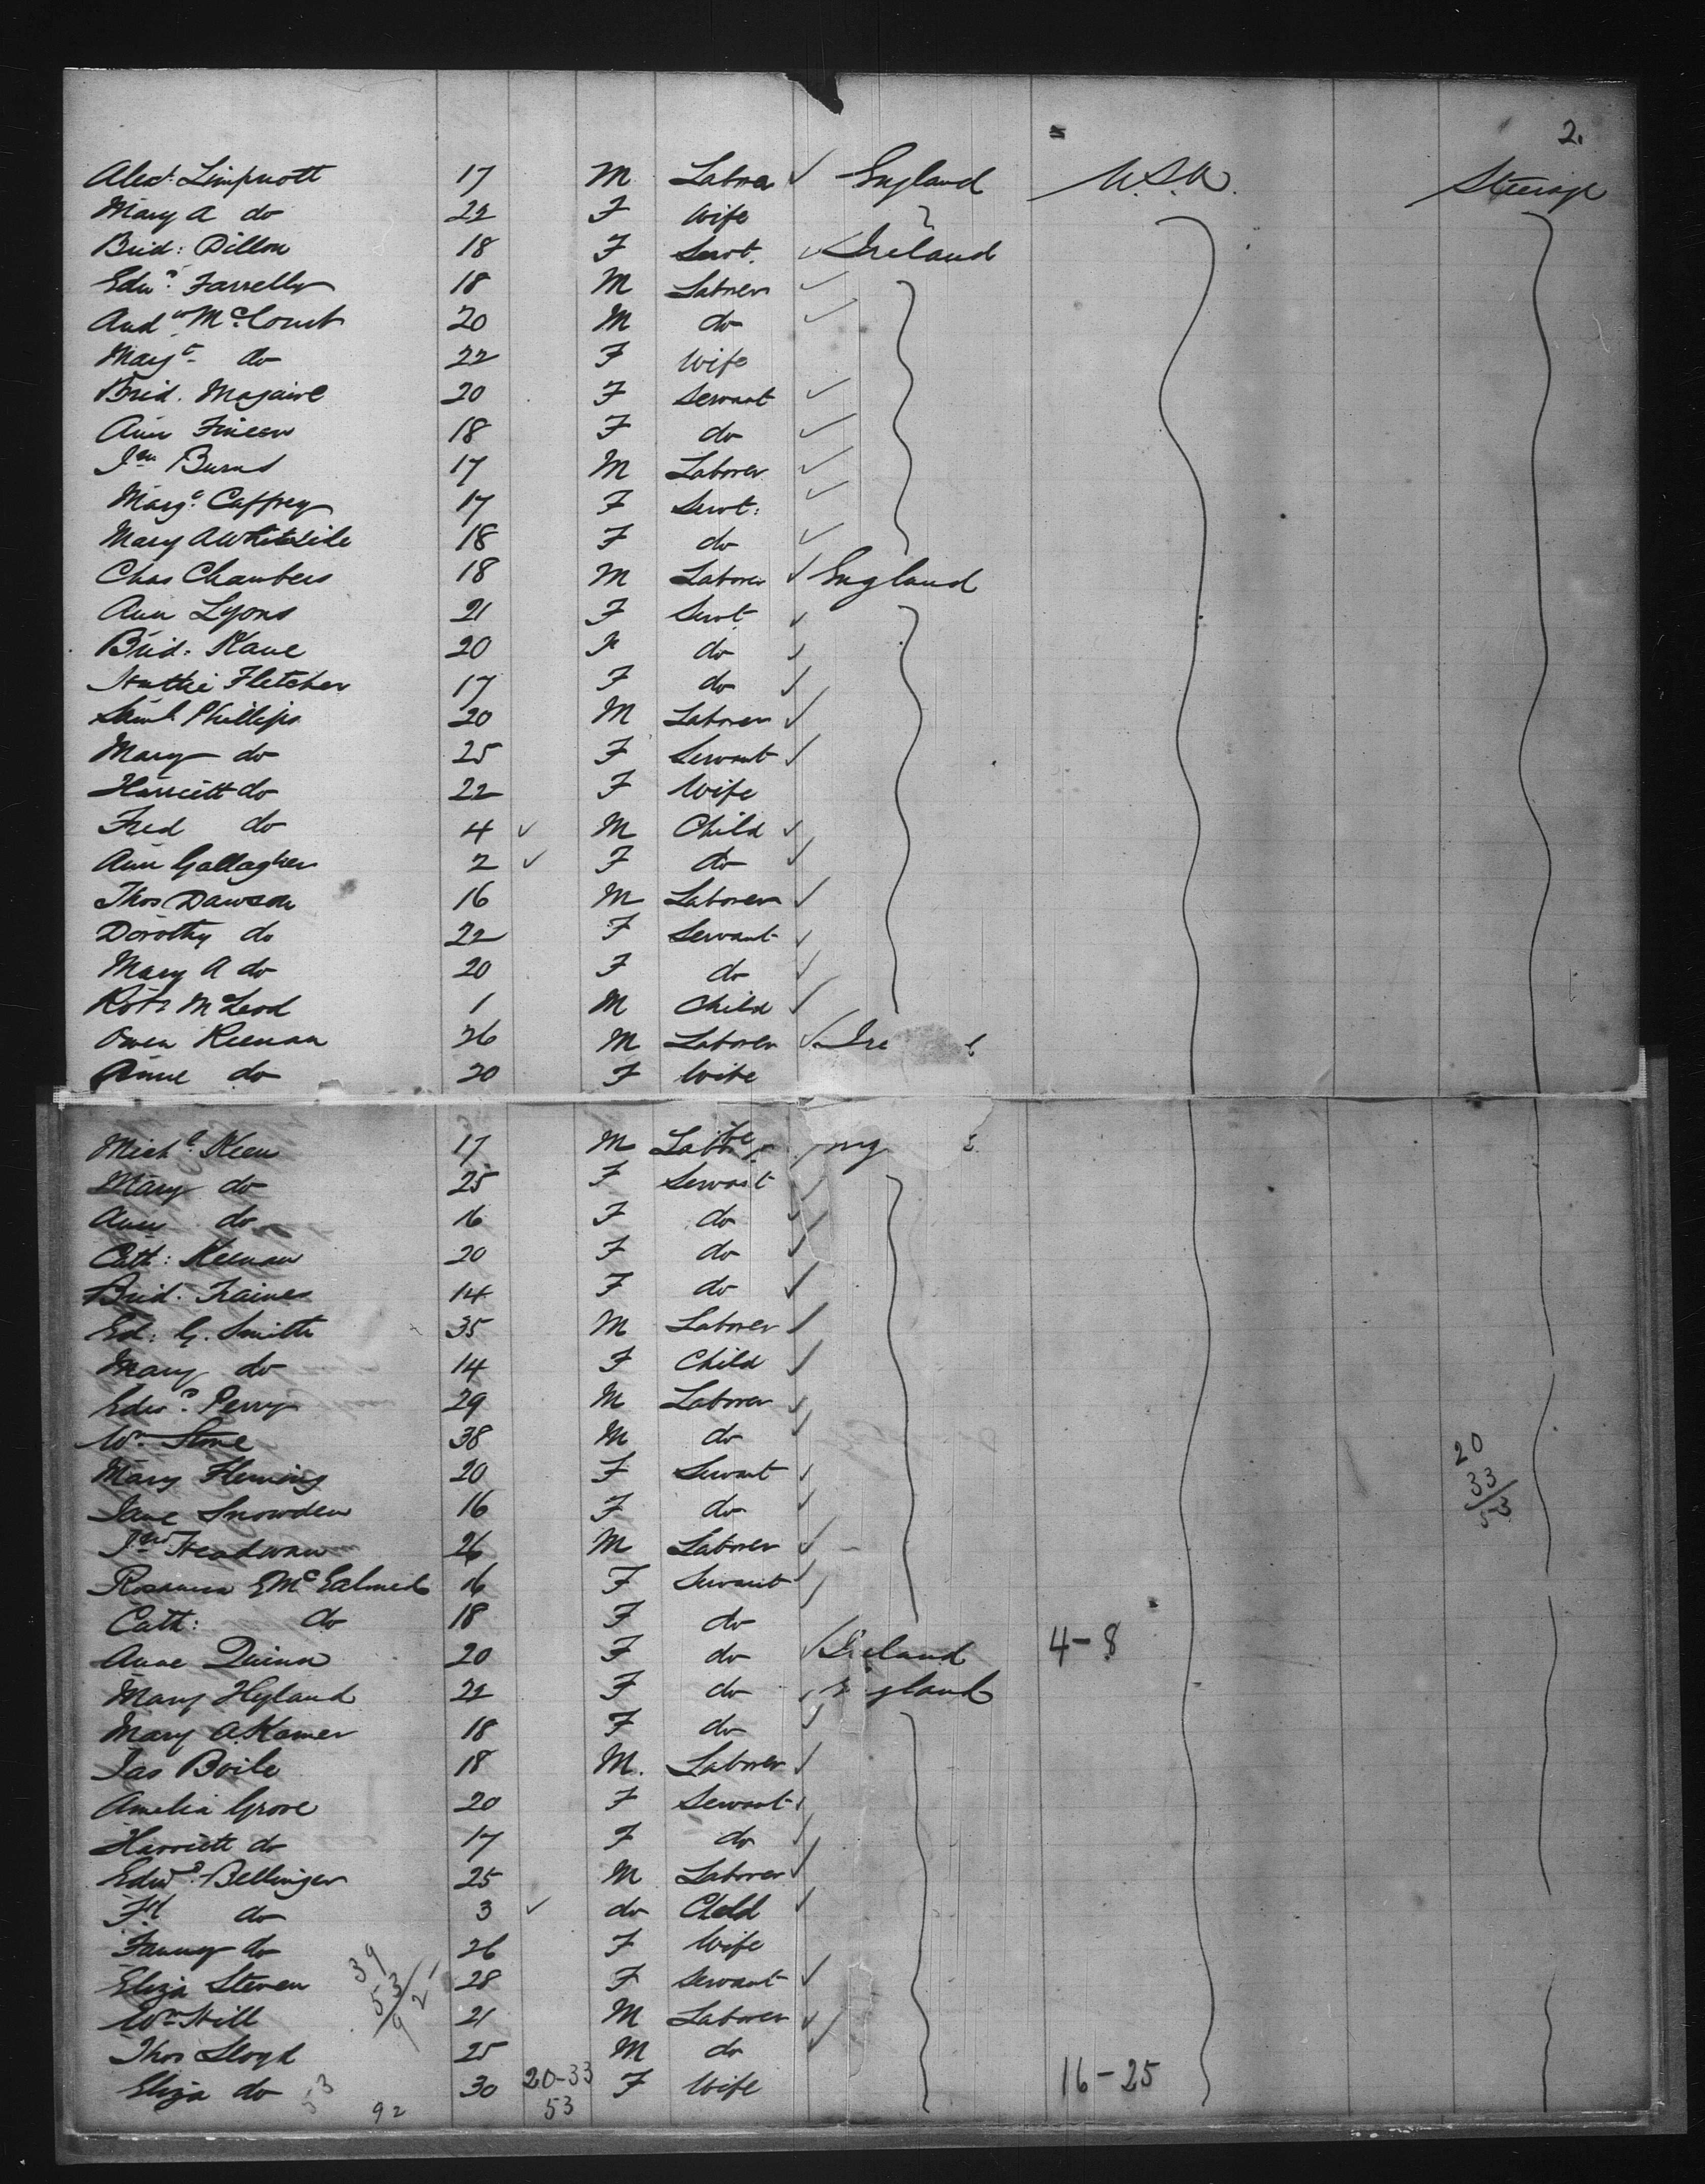 2.
Alexr. Limpnott 17 M Labrer ✓ England U.S.A. Steerage
Mary A do 22 F Wife
Brid: Dillon 18 F Servt. ✓ Ireland
Edwd. Farrelly 18 M Laborer ✓
Andw. McCourt 20 M do ✓
Margt. do 22 F Wife
Brid. Magaire 20 F Servant ✓
Ann Fineen 18 F do ✓
Jno Burns 17 M Laborer ✓
Margt. Caffrey 17 F Servt: ✓
Mary A Whiteside 18 F do ✓
Chas Chambers 18 M Laborer ✓ England
Ann Lyons 21 F Servt ✓
Brid: Kane 20 F do ✓
Fletcher 17 F do ✓
Saml. Phillips 20 M Laborer ✓
Mary do 25 F Servant ✓
Harriett do 22 F Wife
Fred do 4 ✓ M Child ✓
Ann Gallagher 2 ✓ F do ✓
Thos Dawson 16 M Laborer ✓
Dorothy do 22 F Servant ✓
Mary A do 20 F do ✓
Robt McLeod 1 M Child ✓
Owen Keenan 26 M Laborer ✓ Ire
Anne do 20 F Wife
Michl. Keen 17 M Laborer
Mary do 25 F Servant ✓
Ann do 16 F do ✓
Cath: Keenan 20 F do ✓
Brid. Traines 14 F do ✓
Ed: G. Smith 35 M Laborer ✓
Mary do 14 F Child ✓
Edwd. Perry 29 M Laborer ✓
Wm. Stone 38 M do ✓
20
Mary Fleming 20 F Servant ✓
33
Jane Snowden 16 F do ✓
53
Jno Headman 26 M Laborer ✓
Rosanna E McEalmed 16 F Servant ✓
Cath: do 18 F do
Anne Quinn 20 F do ✓ Ireland 4-8
Mary Hyland 22 F do ✓ gland
Mary A. Kamer 18 F do ✓
Jas Boile 18 M. Laborer ✓
Amelia Grove 20 F Servant ✓
Harriett do 17 F do ✓
Edwd. Bellinger 25 M Laborer ✓
Fd do 3 ✓ do Child ✓
Fanny do 26 F Wife
39
Eliza Steven 28 F Servant ✓
53
92
Wm Hill 21 M Laborer ✓
Thos Lloyd 25 M do ✓
Eliza do 30 20-33 F Wife 16-25
53 92 53